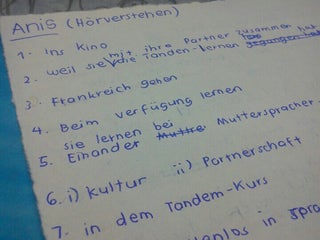 Anis (Hörverstehen)
1. Ins Kino
2. weil sie mit ihre Partner zusammen hat
die Tanden-lernen gegangen hat
3. Frankreich gehen
4. Beim verfügung lernen
sie lernen bei Mutterspracher
5. Einander Muttre
6. i) Kultur ii) Partnerschaft
7. in dem Tandem-Kurs
in